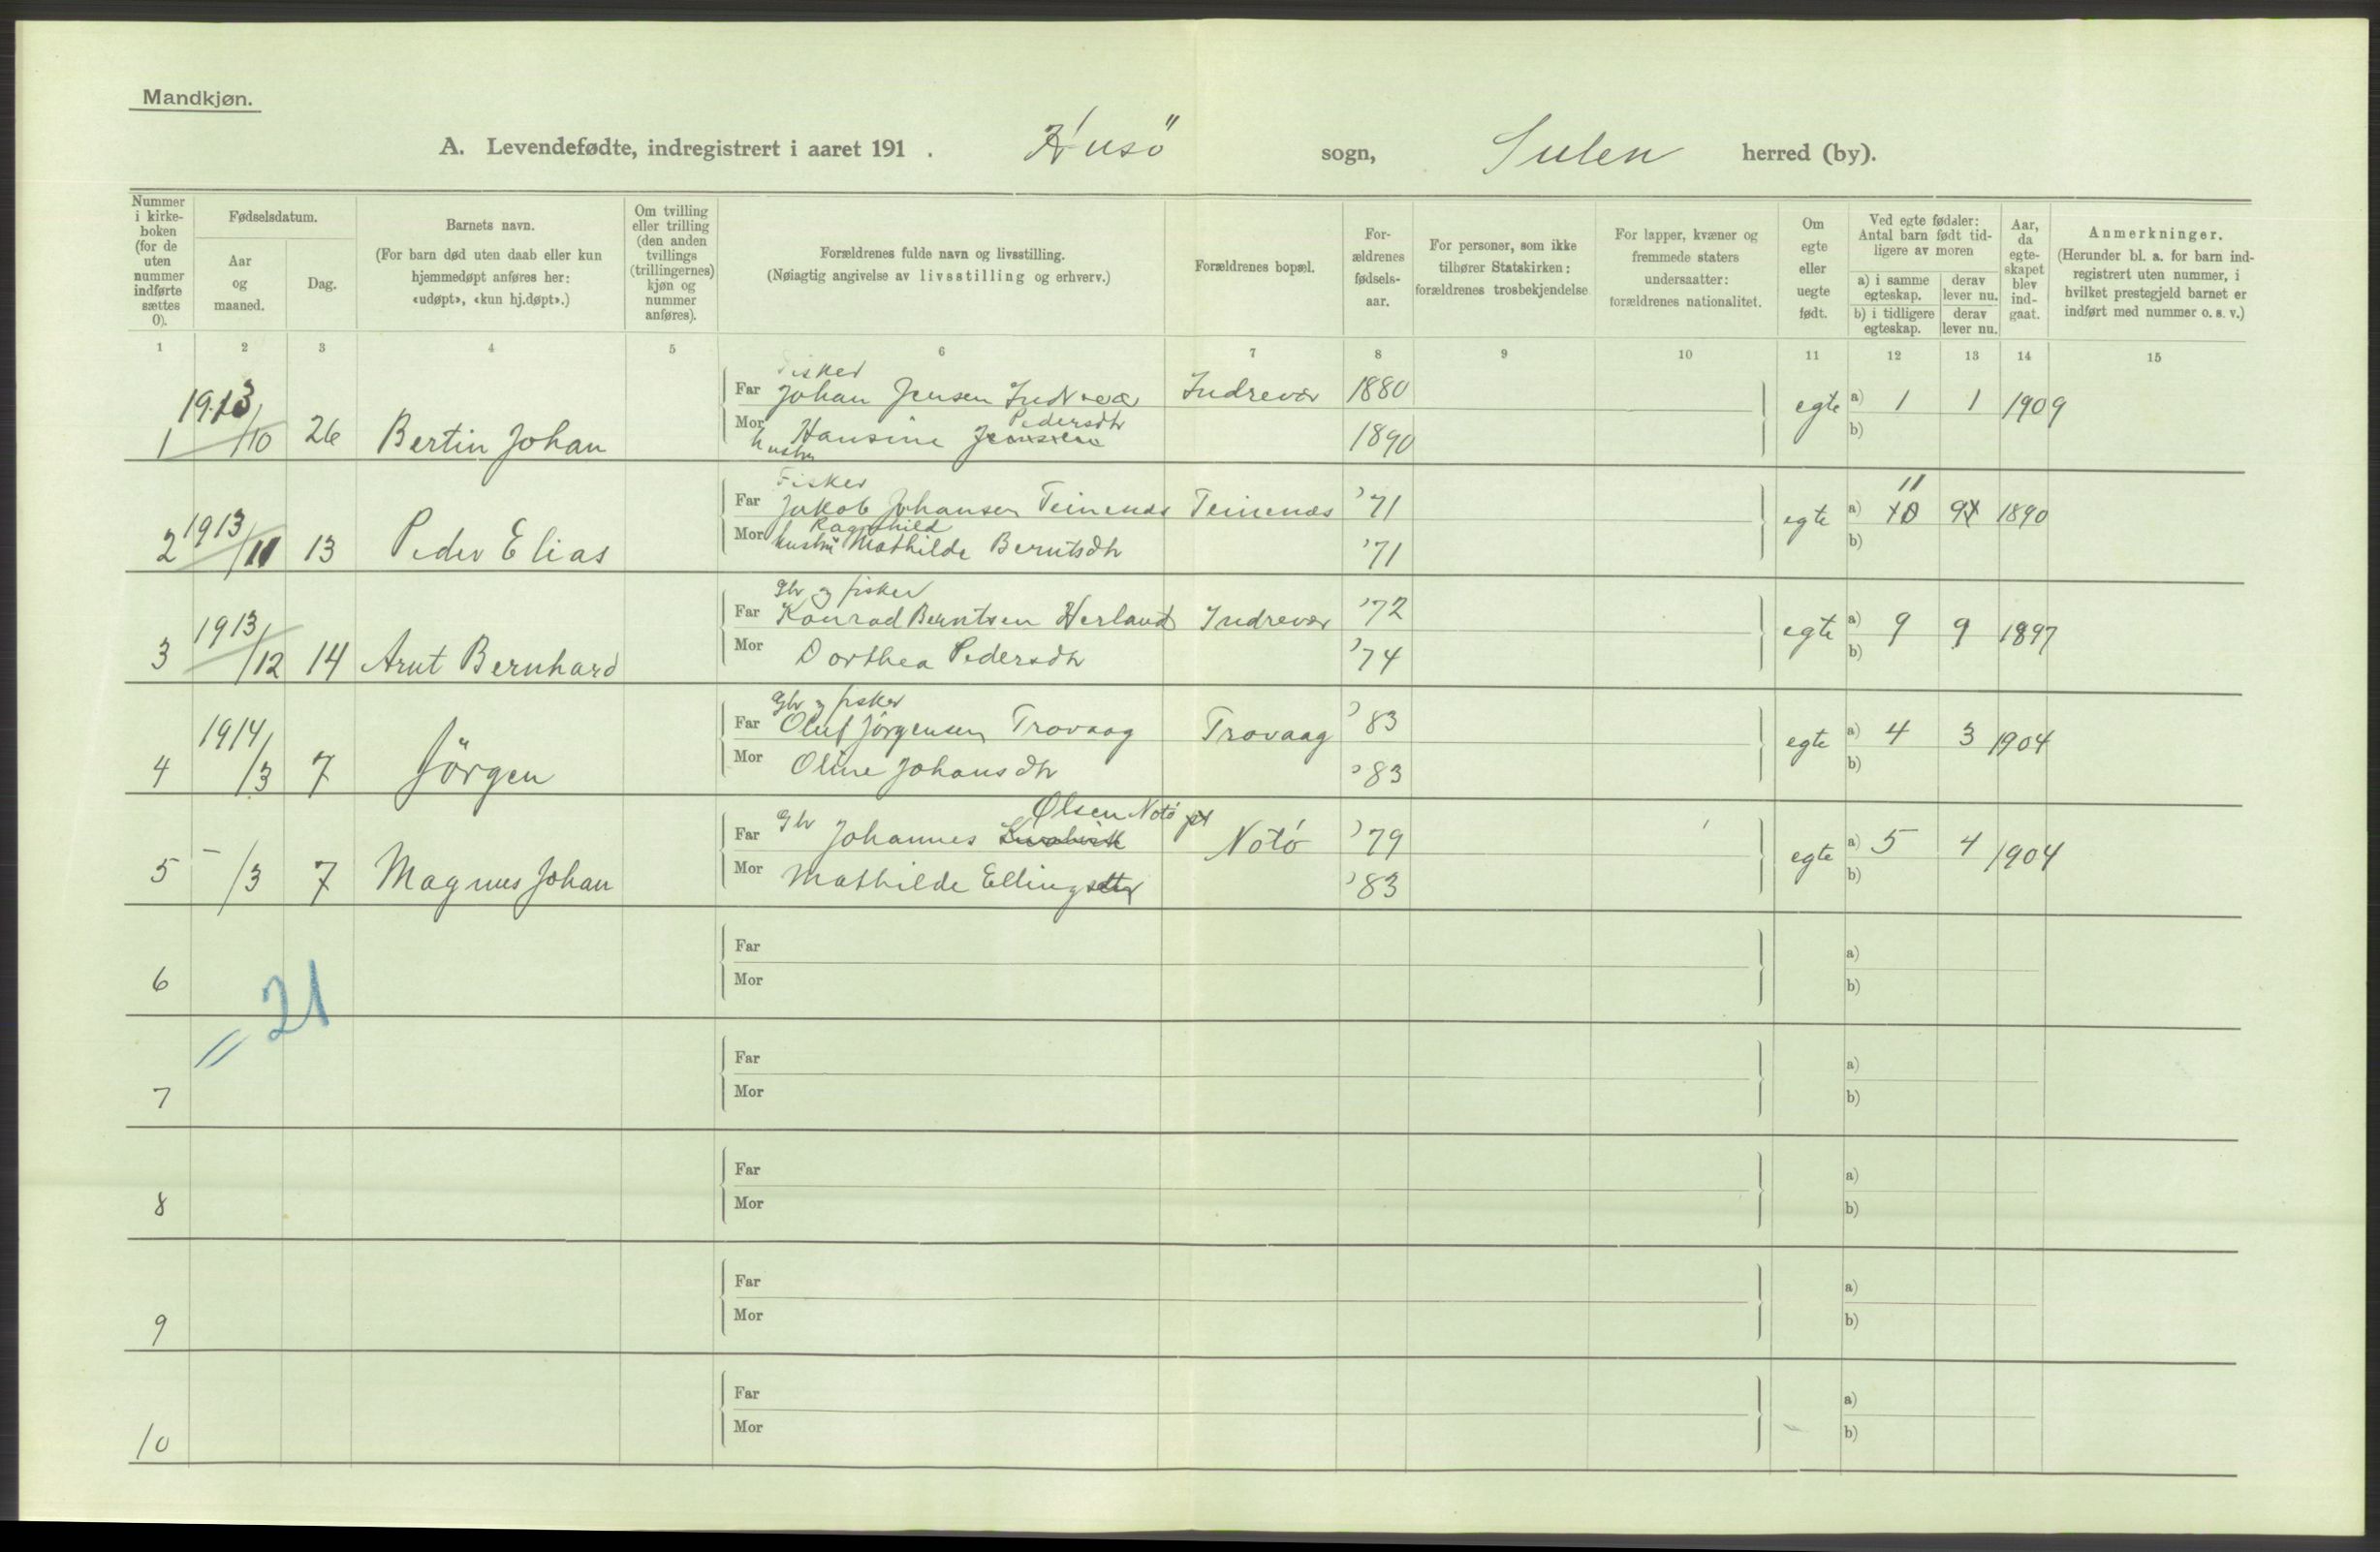 Mandkjøn.
A. Levendefødte, indregistrert i aaret 191 . Husö sogn, Sulen herred (by).
Nummer i kirke- boken (for de uten nummer indførte sættes 0).
Fødselsdatum.
Aar og maaned.
Dag.
Barnets navn.
(For barn død uten daab eller kun hjemmedøpt anføres her: «udøpt», «kun hj.døpt».)
Om tvilling eller trilling (den anden tvillings (trillingernes) kjøn og nummer anføres).
Forældrenes fulde navn og livsstilling.
(Nøiagtig angivelse av livsstilling og erhverv.)
Forældrenes bopæl.
For- ældrenes fødsels- aar.
For personer, som ikke tilhører Statskirken: forældrenes trosbekjendelse.
For lapper, kvæner og fremmede staters undersaatter: forældrenes nationalitet.
Om egte eller uegte født.
Ved egte fødsler: Antal barn født tid- ligere av moren
a) i samme egteskap. derav lever nu.
b) i tidligere egteskap. derav lever nu.
Aar, da egte- skapet blev ind- gaat.
Anmerkninger.
(Herunder bl. a. for barn ind- registrert uten nummer, i hvilket prestegjeld barnet er indført med nummer o. s. v.)
1 2 3 4 5 6 7 8 9 10 11 12 13 14 15
Fisker
1 1913/10 26 Bertin Johan Far Johan Jensen Indrevær Indrevær 1880 egte a) 1 1 1909
Pedersdtr
Mor Hansine Jensen 1890 b)
hustru
Fisker 11
2 1913/11 13 Peder Elias Far Jakob Johansen Teinenæs Teinenæs '71 egte a) 10 9 1890
Ragnhild
Mor hustru Mathilde Berntsdtr '71 b)
Gbr og fisker
3 1913/12 14 Arnt Bernhard Far Konrad Berntsen Herland Indrevær '72 egte a) 9 9 1897
Mor Dorthea Pedersdtr '74 b)
Gbr og fisker
4 1914/3 7 Jörgen Far Oluf Jörgensen Trovaag Trovaag '83 egte a) 4 3 1904
Mor Oline Johansdtr '83 b)
Olsen Notö
5 - /3 7 Magnus Johan Far Gbr Johannes Notö '79 egte a) 5 4 1904
Mor Mathilde Ellingsdtr '83 b)
6 Far a)
Mor b)
= 21
7 Far a)
Mor b)
8 Far a)
Mor b)
9 Far a)
Mor b)
10 Far a)
Mor b)